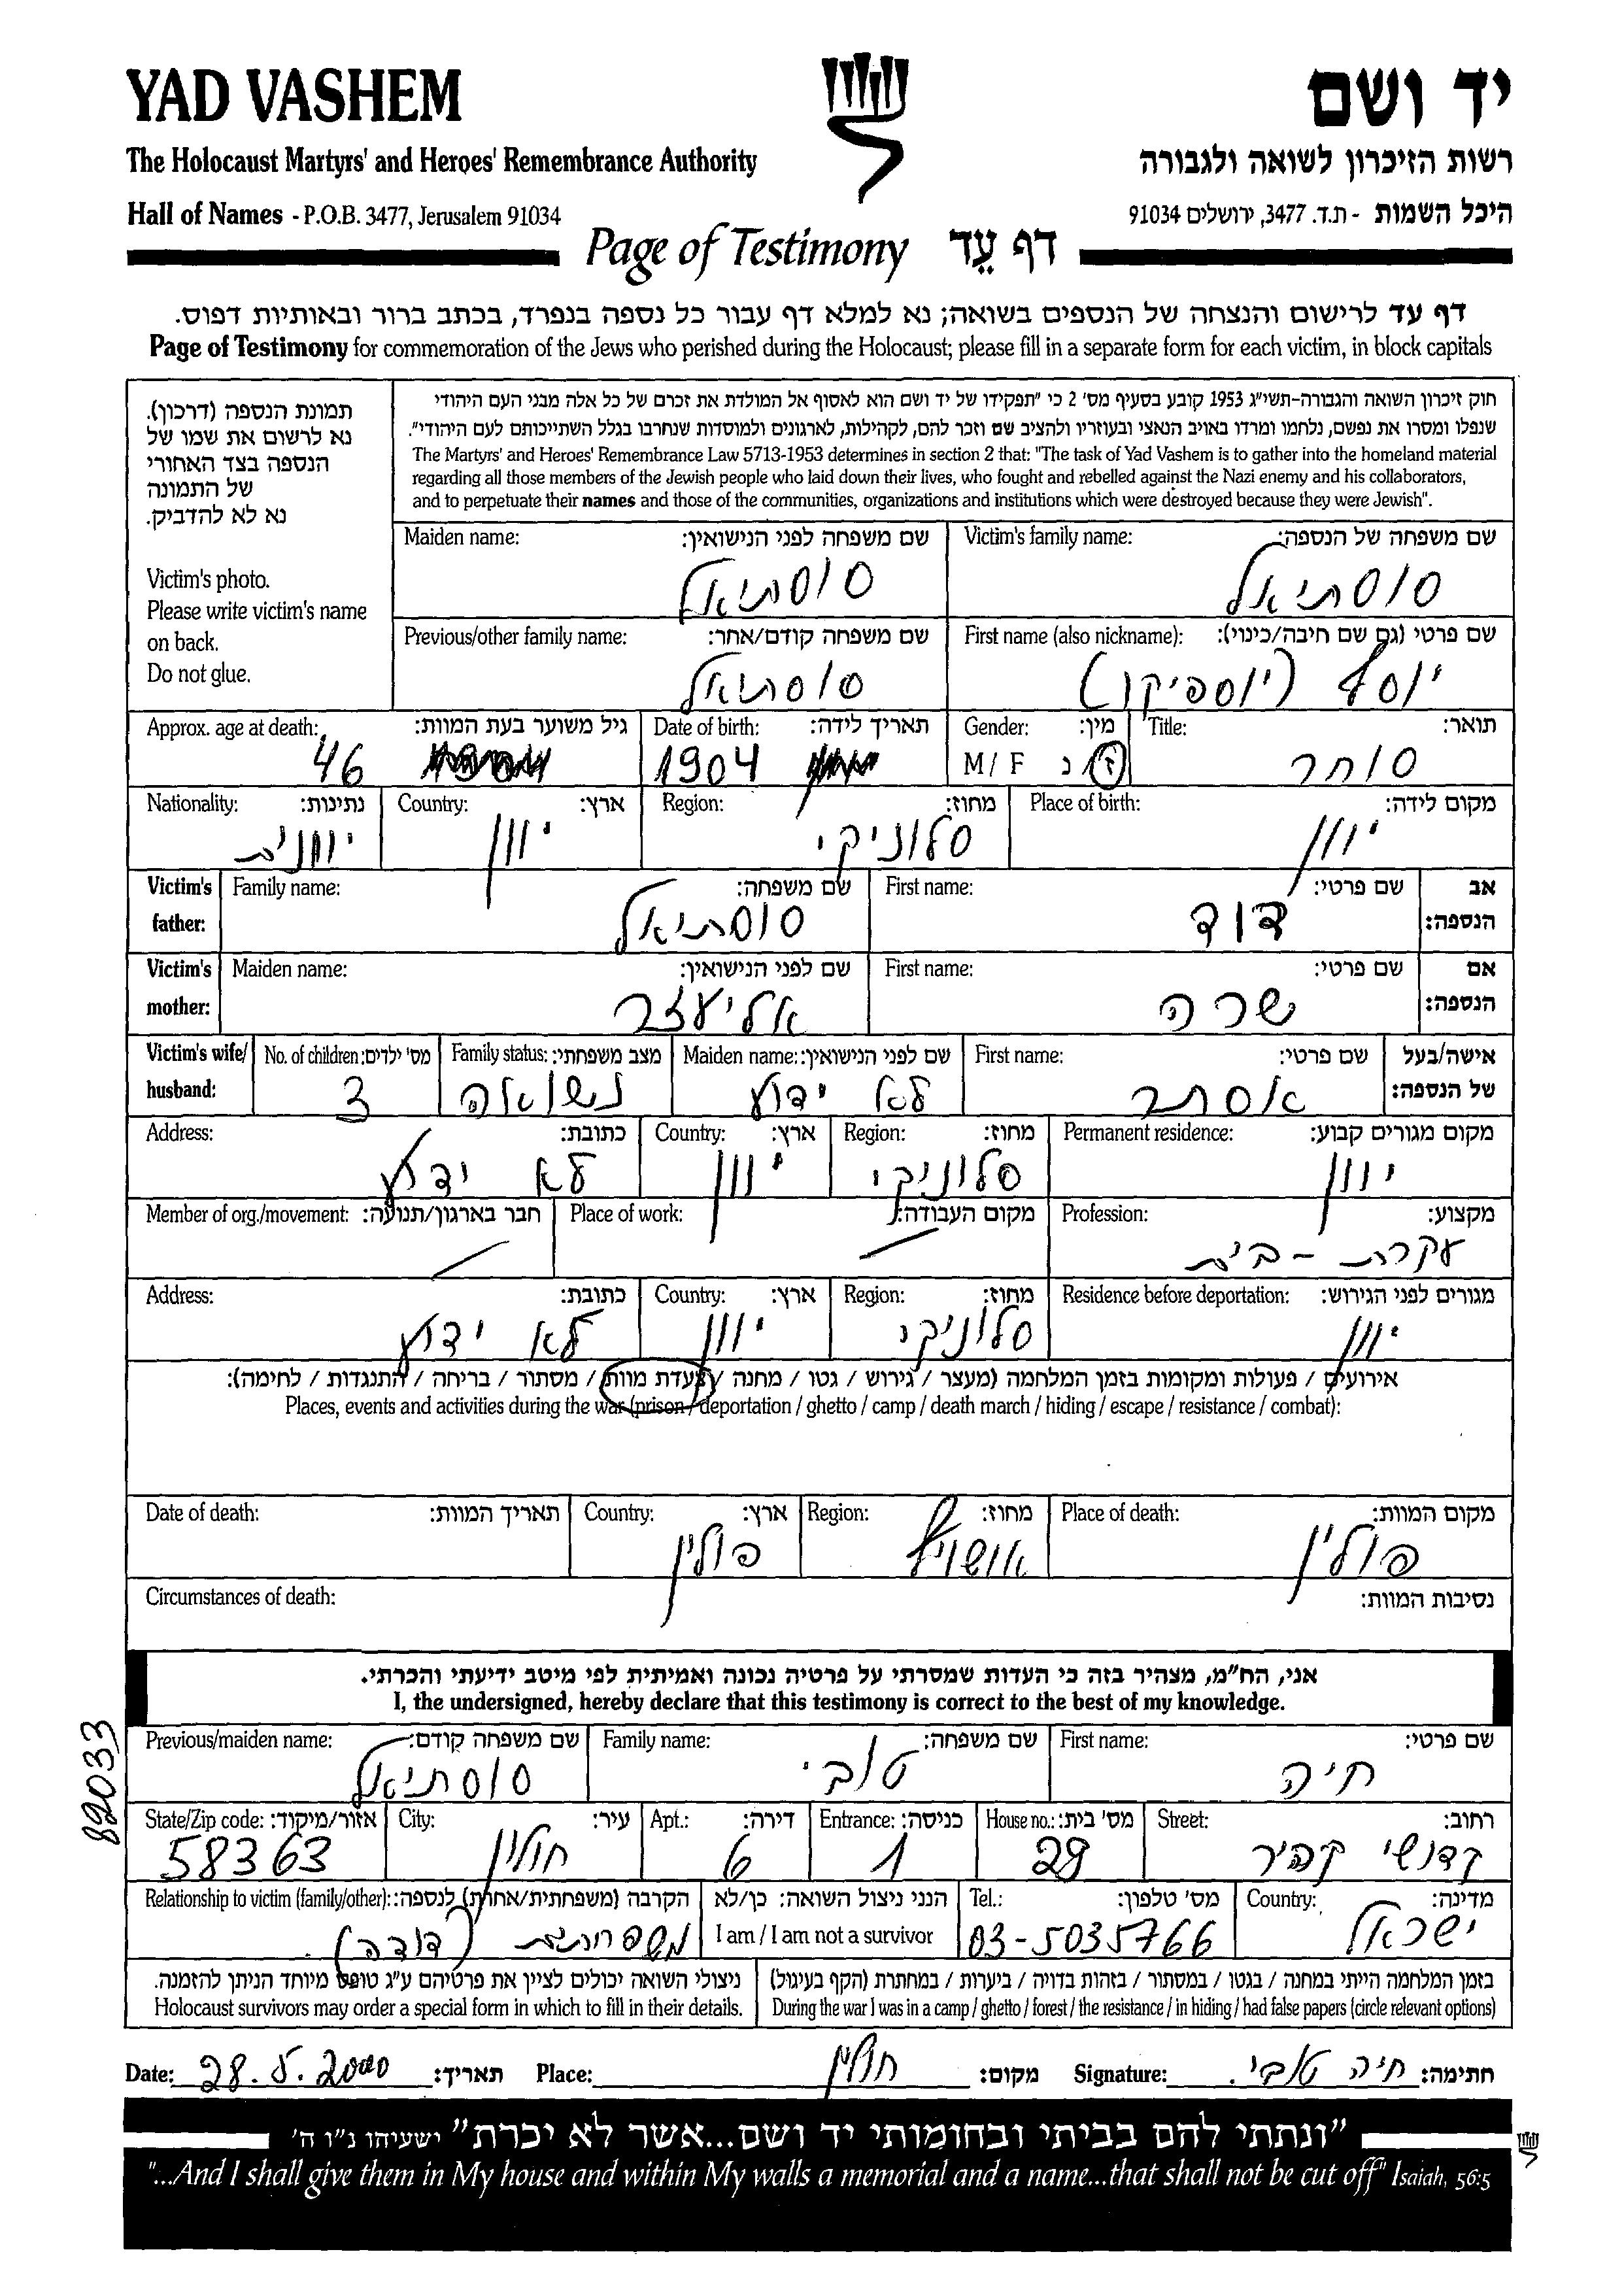 YAD VASHEM יד ושם
The Holocaust Martyrs' and Heroes' Remembrance Authority רשות הזיכרון לשואה ולגבורה
Hall of Names - P.O.B. 3477, Jerusalem 91034 היכל השמות - ת.ד. 3477, ירושלים 91034
Page of Testimony דף עֵד
דף עד לרישום והנצחה של הנספים בשואה; נא למלא דף עבור כל נספה בנפרד, בכתב ברור ובאותיות דפוס.
Page of Testimony for commemoration of the Jews who perished during the Holocaust; please fill in a separate form for each victim, in block capitals
תמונת הנספה (דרכון).
נא לרשום את שמו של
הנספה בצד האחורי
של התמונה
נא לא להדביק.
Victim's photo.
Please write victim's name
on back.
Do not glue.
חוק זיכרון השואה והגבורה-תשי"ג 1953 קובע בסעיף מס' 2 כי "תפקידו של יד ושם הוא לאסוף אל המולדת את זכרם של כל אלה מבני העם היהודי
שנפלו ומסרו את נפשם, נלחמו ומרדו באויב הנאצי ובעוזריו ולהציב שם וזכר להם, לקהילות, לארגונים ולמוסדות שנחרבו בגלל השתייכותם לעם היהודי".
The Martyrs' and Heroes' Remembrance Law 5713-1953 determines in section 2 that: "The task of Yad Vashem is to gather into the homeland material
regarding all those members of the Jewish people who laid down their lives, who fought and rebelled against the Nazi enemy and his collaborators,
and to perpetuate their names and those of the communities, organizations and institutions which were destroyed because they were Jewish".
Victim's family name: שם משפחה של הנספה: Maiden name: שם משפחה לפני הנישואין:
סוסתיאל סוסתיאל
First name (also nickname): שם פרטי (גם שם חיבה/כינוי): Previous/other family name: שם משפחה קודם/אחר:
יוסף (יוספיקו) סוסתיאל
Title: תואר: Gender: מין: Date of birth: תאריך לידה: Approx. age at death: גיל משוער בעת המוות:
סוחר M / F ז / נ 1904 46
Place of birth: מקום לידה: Region: מחוז: Country: ארץ: Nationality: נתינות:
יוון סלוניקי יוון יוונית
אב הנספה: First name: שם פרטי: Family name: שם משפחה: Victim's father:
דוד סוסתיאל
אם הנספה: First name: שם פרטי: Maiden name: שם לפני הנישואין: Victim's mother:
שרה אליעזר
אישה/בעל של הנספה: First name: שם פרטי: Maiden name: שם לפני הנישואין: Family status: מצב משפחתי: No. of children: מס' ילדים: Victim's wife/ husband:
אסתר לא ידוע נשואה 3
Permanent residence: מקום מגורים קבוע: Region: מחוז: Country: ארץ: Address: כתובת:
יוון סלוניקי יוון לא ידוע
Profession: מקצוע: Place of work: מקום העבודה: Member of org./movement: חבר בארגון/תנועה:
עקרת - בית
Residence before deportation: מגורים לפני הגירוש: Region: מחוז: Country: ארץ: Address: כתובת:
יוון סלוניקי יוון לא ידוע
אירועים / פעולות ומקומות בזמן המלחמה (מעצר / גירוש / גטו / מחנה / צעדת מוות / מסתור / בריחה / התנגדות / לחימה):
Places, events and activities during the war (prison / deportation / ghetto / camp / death march / hiding / escape / resistance / combat):
Place of death: מקום המוות: Region: מחוז: Country: ארץ: Date of death: תאריך המוות:
פולין אושויץ פולין
Circumstances of death: נסיבות המוות:
אני, הח"מ, מצהיר בזה כי העדות שמסרתי על פרטיה נכונה ואמיתית לפי מיטב ידיעתי והכרתי.
I, the undersigned, hereby declare that this testimony is correct to the best of my knowledge.
First name: שם פרטי: Family name: שם משפחה: Previous/maiden name: שם משפחה קודם:
חיה טובי סוסתיאל
82033
Street: רחוב: House no.: מס' בית: Entrance: כניסה: Apt.: דירה: City: עיר: State/Zip code: אזור/מיקוד:
קדושי קהיר 29 1 6 חולון 58363
Country: מדינה: Tel.: מס' טלפון: הנני ניצול השואה: כן/לא Relationship to victim (family/other): הקרבה (משפחתית/אחרת) לנספה:
ישראל 03-5035766 I am / I am not a survivor משפחתית (דודה).
בזמן המלחמה הייתי במחנה / בגטו / במסתור / בזהות בדויה / ביערות / במחתרת (הקף בעיגול) ניצולי השואה יכולים לציין את פרטיהם ע"ג טופס מיוחד הניתן להזמנה.
During the war I was in a camp / ghetto / forest / the resistance / in hiding / had false papers (circle relevant options) Holocaust survivors may order a special form in which to fill in their details.
Date: 28.5.2000 תאריך: Place: חולון מקום: Signature: חיה טובי. חתימה:
"ונתתי להם בביתי ובחומותי יד ושם...אשר לא יכרת" ישעיהו נ"ו ה'
"...And I shall give them in My house and within My walls a memorial and a name...that shall not be cut off" Isaiah, 56:5